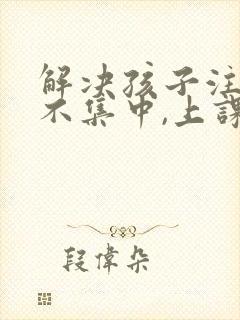 解决孩子注
不集中,上課
段偉朵